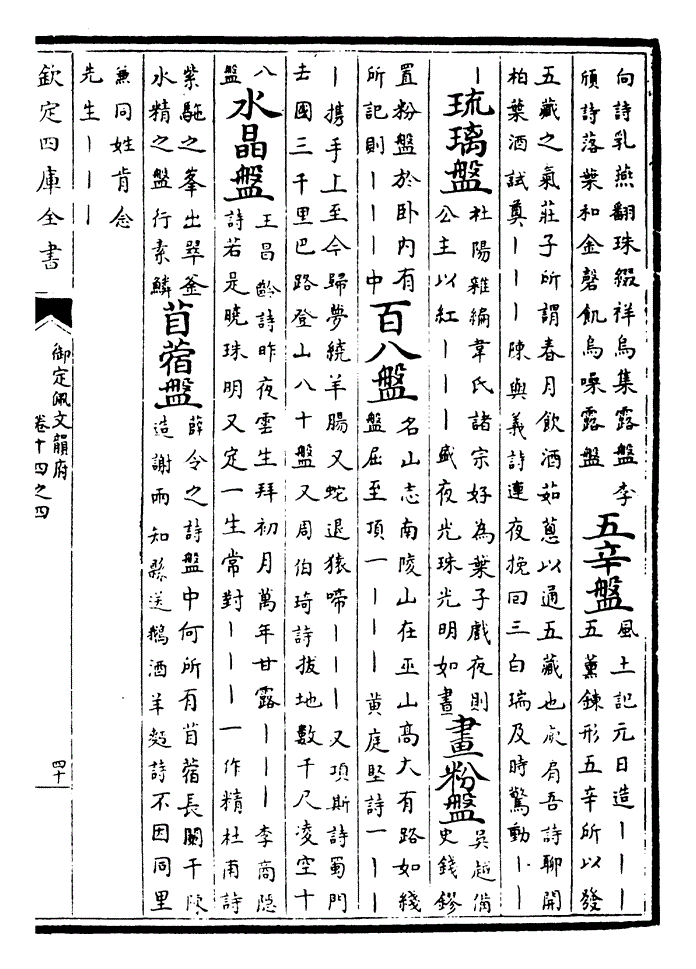 向詩乳燕翻珠綴祥烏集露盤李
頎詩落葉和金磬飢烏噪露盤
五辛盤
風土記元日造丨丨丨
五薰鍊形五辛所以發
五藏之氣莊子所謂春月飲酒茹蔥以通五藏也庾肩吾詩聊開
柏葉酒試奠丨丨丨陳與義詩連夜挽回三白瑞及時驚動丨丨
丨
琉璃盤
杜陽雜編韋氏諸宗好為葉子戲夜則
公主以紅丨丨丨盛夜光珠光明如晝
畫粉盤
吳越備
史錢鏐
置粉盤於卧内有
所記則丨丨丨中
百八盤
名山志南陵山在巫山高大有路如綫
盤屈至頂一丨丨丨黄庭堅詩一丨丨
丨攜手上至今歸夢繞羊腸又蛇退猿啼丨丨丨又項斯詩蜀門
去國三千里巴路登山八十盤又周伯琦詩拔地數千尺凌空十
八
盤
水晶盤
王昌齡詩昨夜雲生拜初月萬年甘露丨丨丨李商隐
詩若是曉珠明又定一生常對丨丨丨一作精杜甫詩
紫駞之峯出翠釜
水精之盤行素鱗
苜蓿盤
薛令之詩盤中何所有苜蓿長闌干陳
造謝兩知縣送鵝酒羊麫詩不因同里
兼同姓肯念
先生丨丨丨
欽定四庫全書
御定佩文韻府
卷十四之四
四十